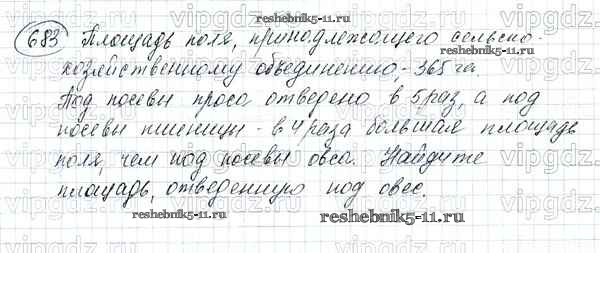 683 Площадь поля, принадлежащего сельско-
хозяйственному объединению, - 365 га.
Под посевы проса отведено в 5 раз, а под
посевы пшеницы - в 4 раза большая площадь
поля, чем под посевы овса. Найдите
площадь, отведенную под овес.
reshebnik5-11.ru
reshebnik5-11.ru
reshebnik5-11.ru
vipgdz.com